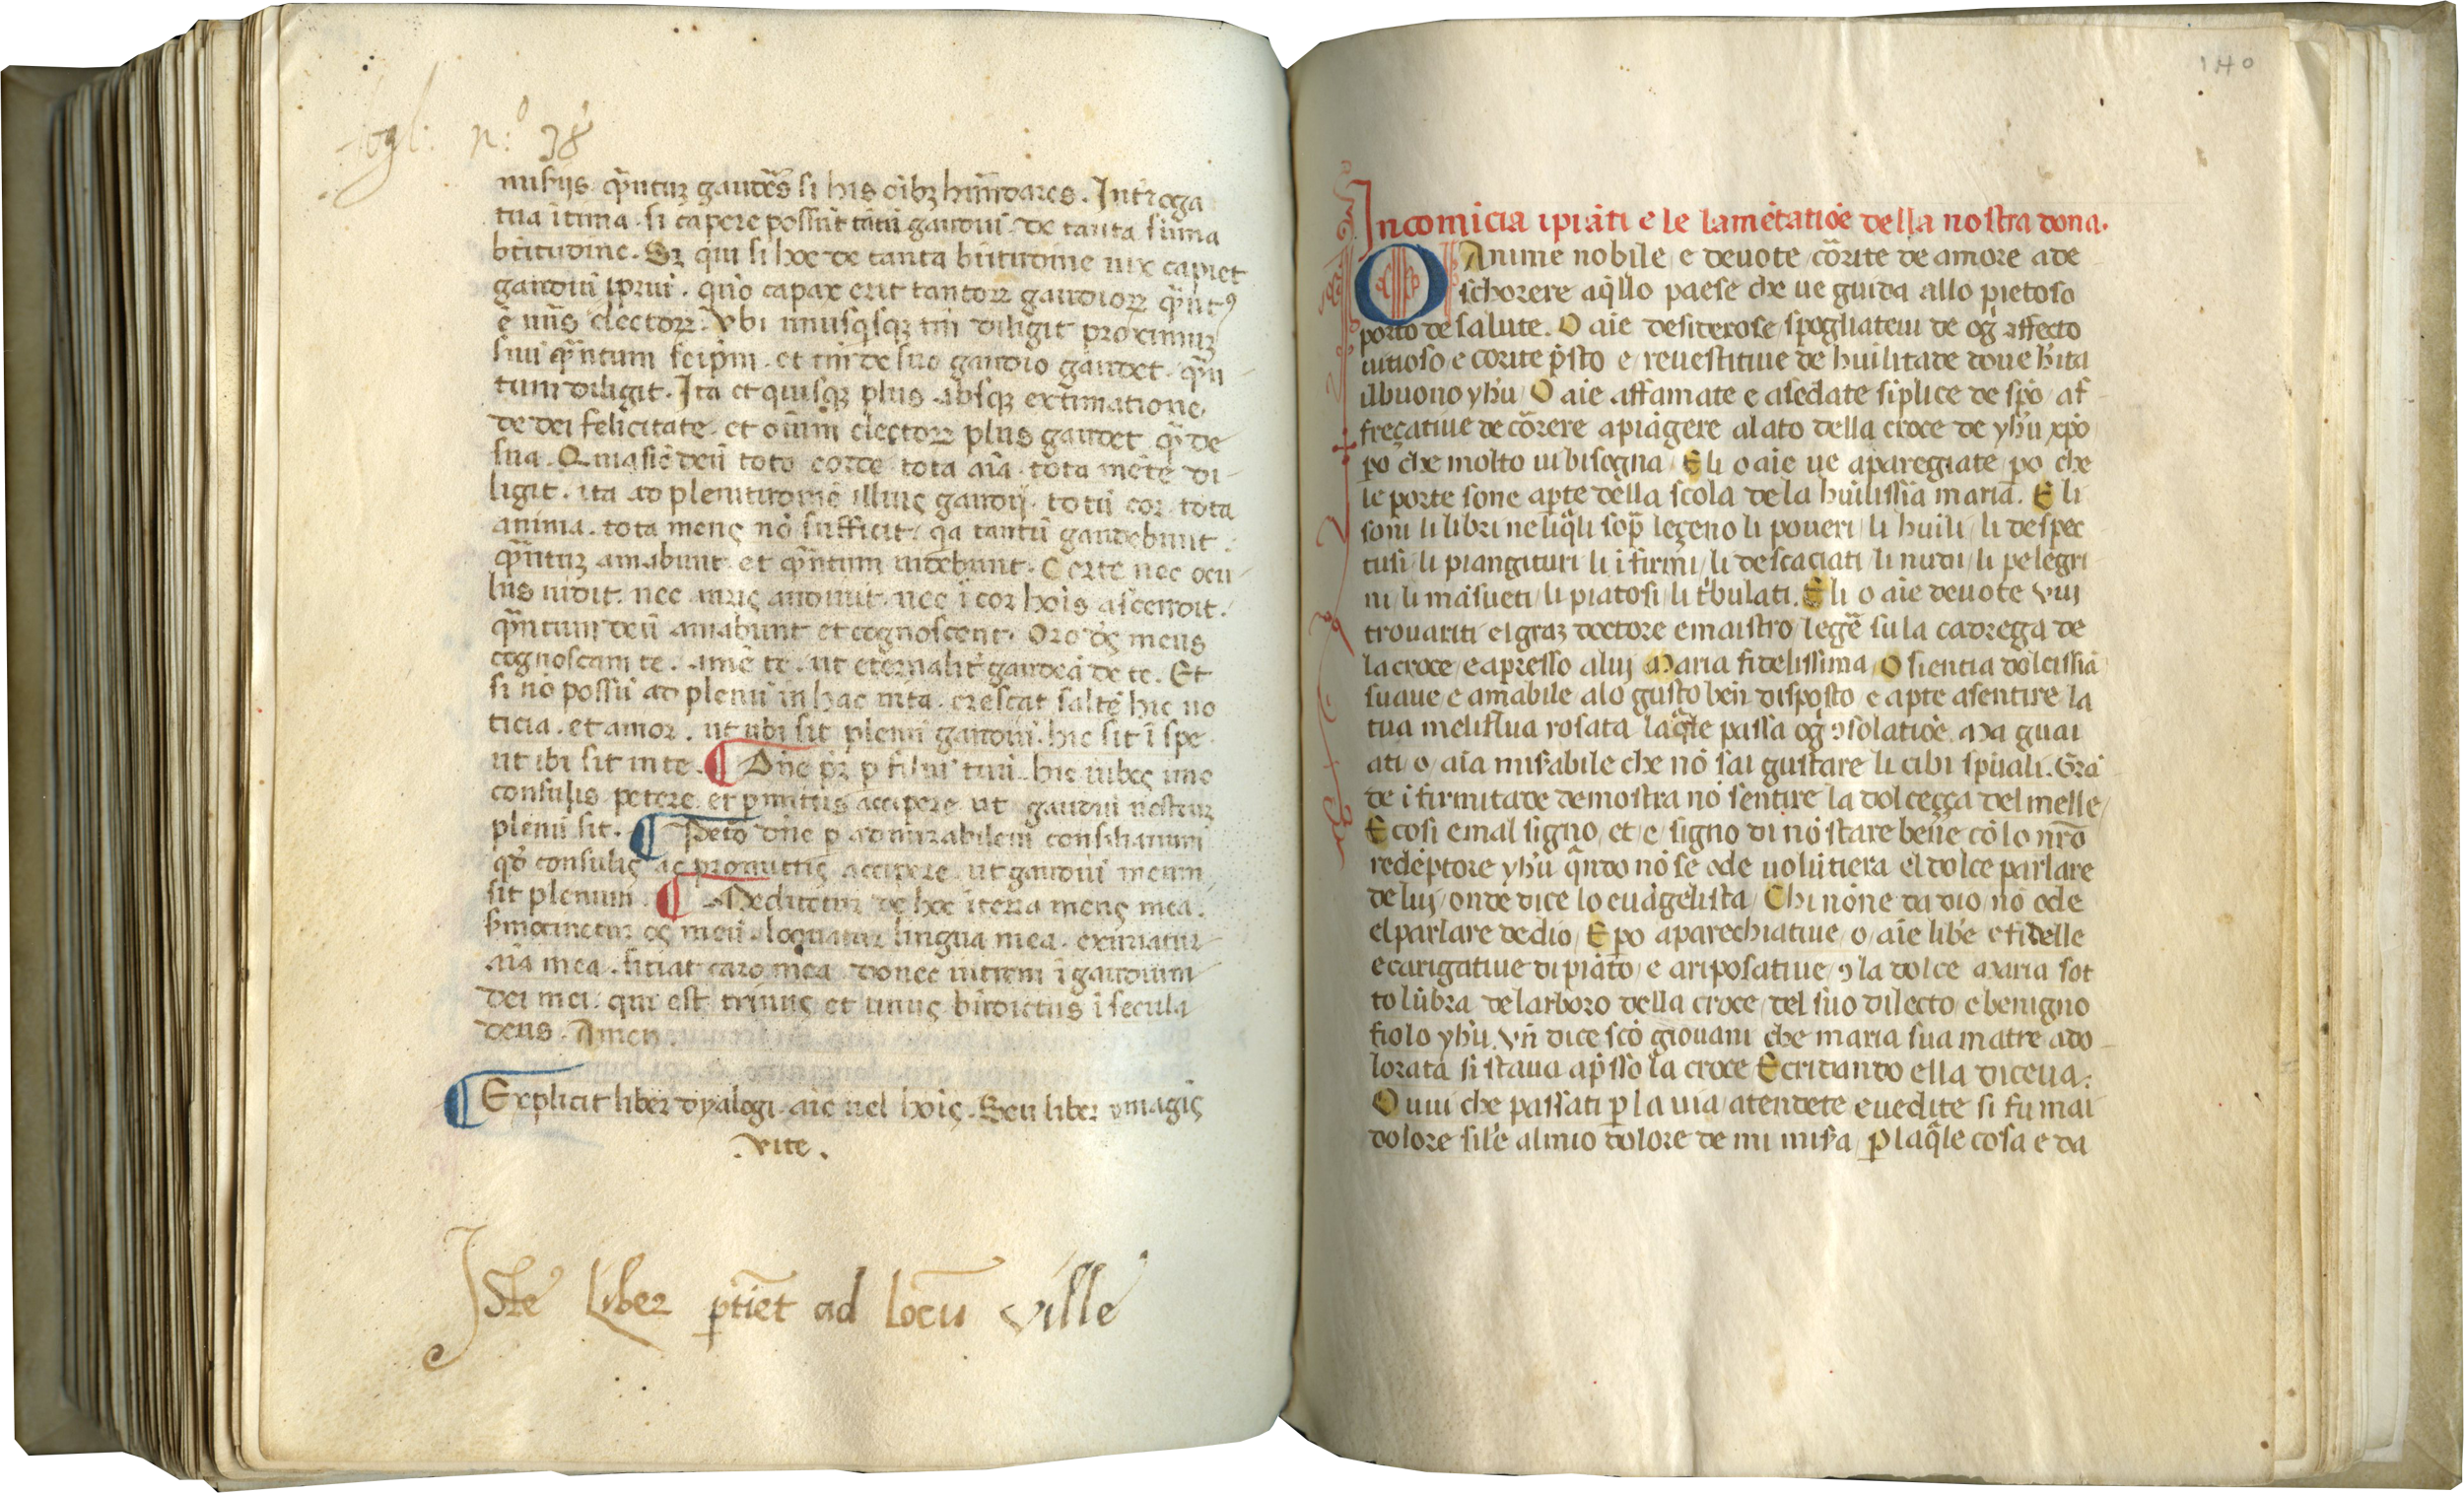 fogl: n.º 38
nusijs. q̄ntuʒ gaudēs si his oībʒ hūndares. Intͬoga
tua ītima. si capere possūt tātū gaudiū. de tanta sūma
btītudine. Sʒ qui si hoc de tanta btītudine uix capiet
gaudiū ip̄iui. quō capax erit tantoꝝ gaudioꝝ
electoꝝ. Vbi unusqͥsqʒ tm̄ diligit proximuʒ
suū q̄ntum seip̄m. et tm̄ de suo gaudio gaudet. q̄n-
tum diligit. Ita et quisqʒ plus absqʒ extimatione
de dei felicitate. et oīum electoꝝ plus gaudet q̄ de
sua. Quia sic deū toto corde tota aīa. tota mēte di-
ligit. ita ad plenitudinē illius gaudij. totū cor. tota
anima. tota mens nō sufficit. qͥa tantū gaudebunt.
q̄ntuʒ amabunt. et q̄ntum uidebunt. Certe nec ocu-
lus uidit. nec auris audiuit. nec ī cor hoīs ascendit.
q̄ntum deū amabunt et cognoscent. Oro ds̄ meus
cognoscam te. amē te. ut eternalit̄ gaudeā de te. Et
si nō possū ad plenū in hac uita. crescat saltē hic no
ticia. et amor. ut ubi sit plenū gaudiū. hic sit ī spe
ut ibi sit in te. ¶ Dn̄e pr̄ p filiū tuū. hic iubes imo
consulis petere. et p̄mittis accipere ut gaudiū nostruʒ
plenū sit. ¶ Peto dn̄e p admirabilem consiliarium
qd̄ consulis ac promittis accipere. ut gaudiū meum
sit plenum. ¶ Meditetur de hoc īterea mens mea.
s̄mocinetur os meū. loquatur lingua mea. exuriatur
aīa mea. sitiat caro mea. donec intrem ī gaudium
dei mei. qui est trinus et unus bn̄dictus ī secula
deus. Amen.
¶ Explicit liber dyalogi. aīe uel hoīs. Seu liber ymagis
.vite.
Iste Liber ptīet ad locū ville
140
Incomicia ipiāti e le lamētatiōe della nostra dona.
O Anime nobile e deuote cōrite de amore a de
schorere aq̄llo paese che ue guida allo pietoso
porto de salute. O aīe desiderose spogliateui de og̅ affecto
uitioso e corite p̄sto e reuestitiue de huīlitade doue hīta
ilbuono yhū. O aīe affamate e asedate sīplice de spō af
freçatiue de cōrere apiāgere alato della croce de yhū xp̄o
po che molto ui bisogna. E li o aīe ue aparegiate po che
le porte sone apte della scola de la huīlissīa maria. E li
sonī li libri neliq̄li sop̄ leçeno li poueri li huīli li despec
tusi li piangituri li ifirmi li descaciati li nudi li pelegri
ni li māsueti li piatosi li tͥbulati. E li o aīe deuote vui
trouariti el graʒ doctore e maistro legē su la cadrega de
la croce e apresso a luj Maria fidelissima. O sientia dolcissīa
suaue e amabile alo gusto ben̄ disposto e apte asentire la
tua meliflua rosata laq̄le passa og̅ ꝯsolatiōe. Ma guai
ati o aīa misabile che nō sai gustare li cibi spūali. Grā
de ifirmitade demostra nō sentire la dolceçça del melle
E cosi e mal signo et e signo di nō stare bene cō lo nr̄o
redēptore yhū q̄ndo nō se ode uolūtiera el dolce parlare
de luj onde dice lo euāgelista. Chi nōne da dio nō ode
el parlare de dio. E po aparechiatiue o aīe libe e fidelle
e carigatiue di piāto e ariposatiue ꝯ la dolce Maria sot
to lūbra delarboro della croce del suo dilecto e benigno
fiolo yhū. Vn̄ dice scō giouani che maria sua matre ado-
lorata si staua apsso la croce E cridando ella diceua.
O uui che passati p la uia atendete e uedite si fu mai
dolore sil'e almio dolore de mi misa. p laq̄le cosa e da